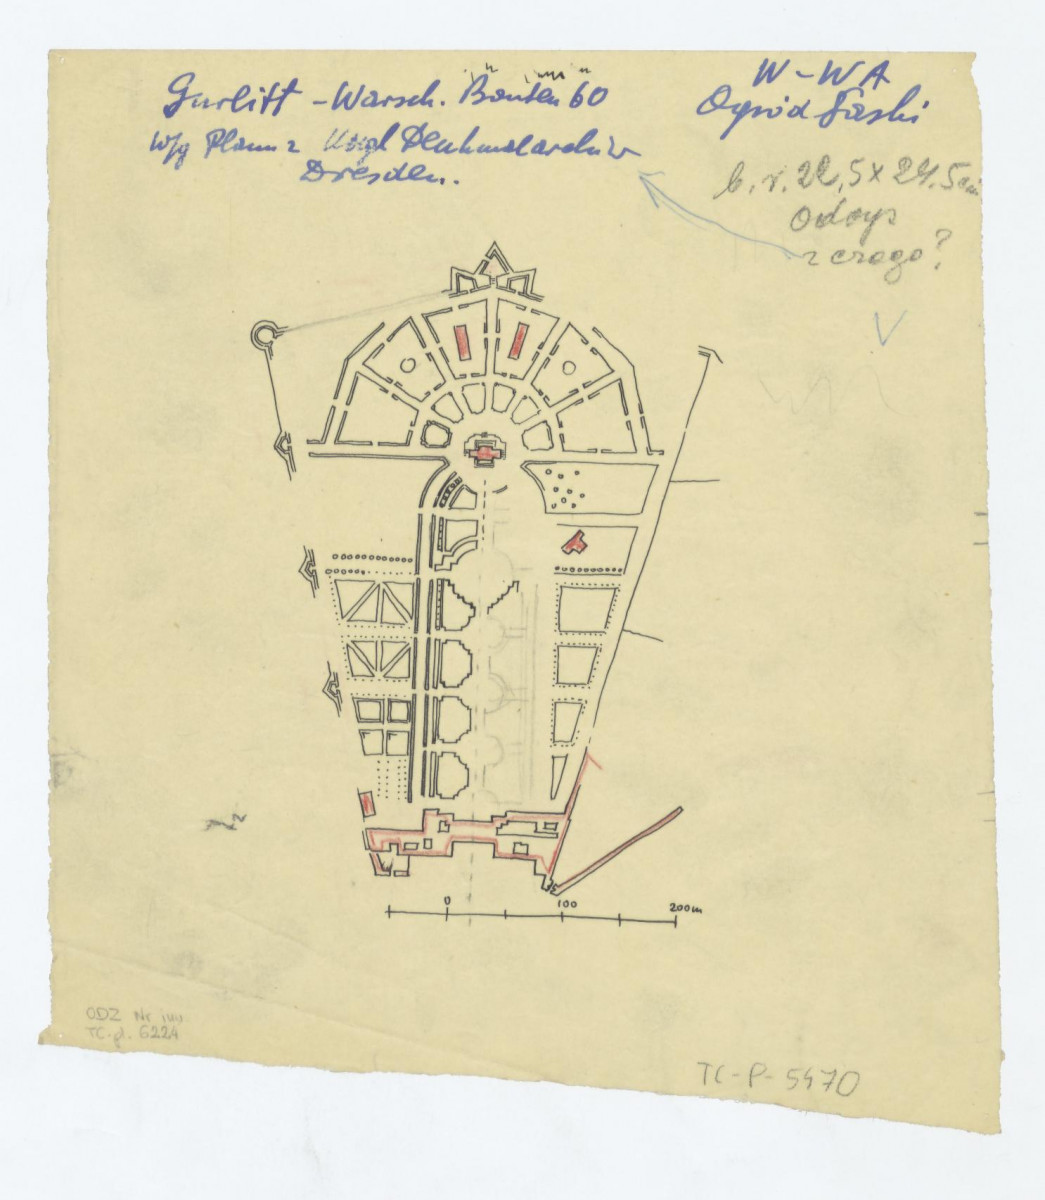 Gurlitt – Warsch. Bauten 60
W/g Planu z Kögl Denkmalarchiv
Dresden.
W-WA
Ogród Saski
b. r. 22,5 x 24.5 cm
Odrys
z czego?
0 100 200m
ODZ Nr inw.
TC-pl. 6224
TC-P-5470